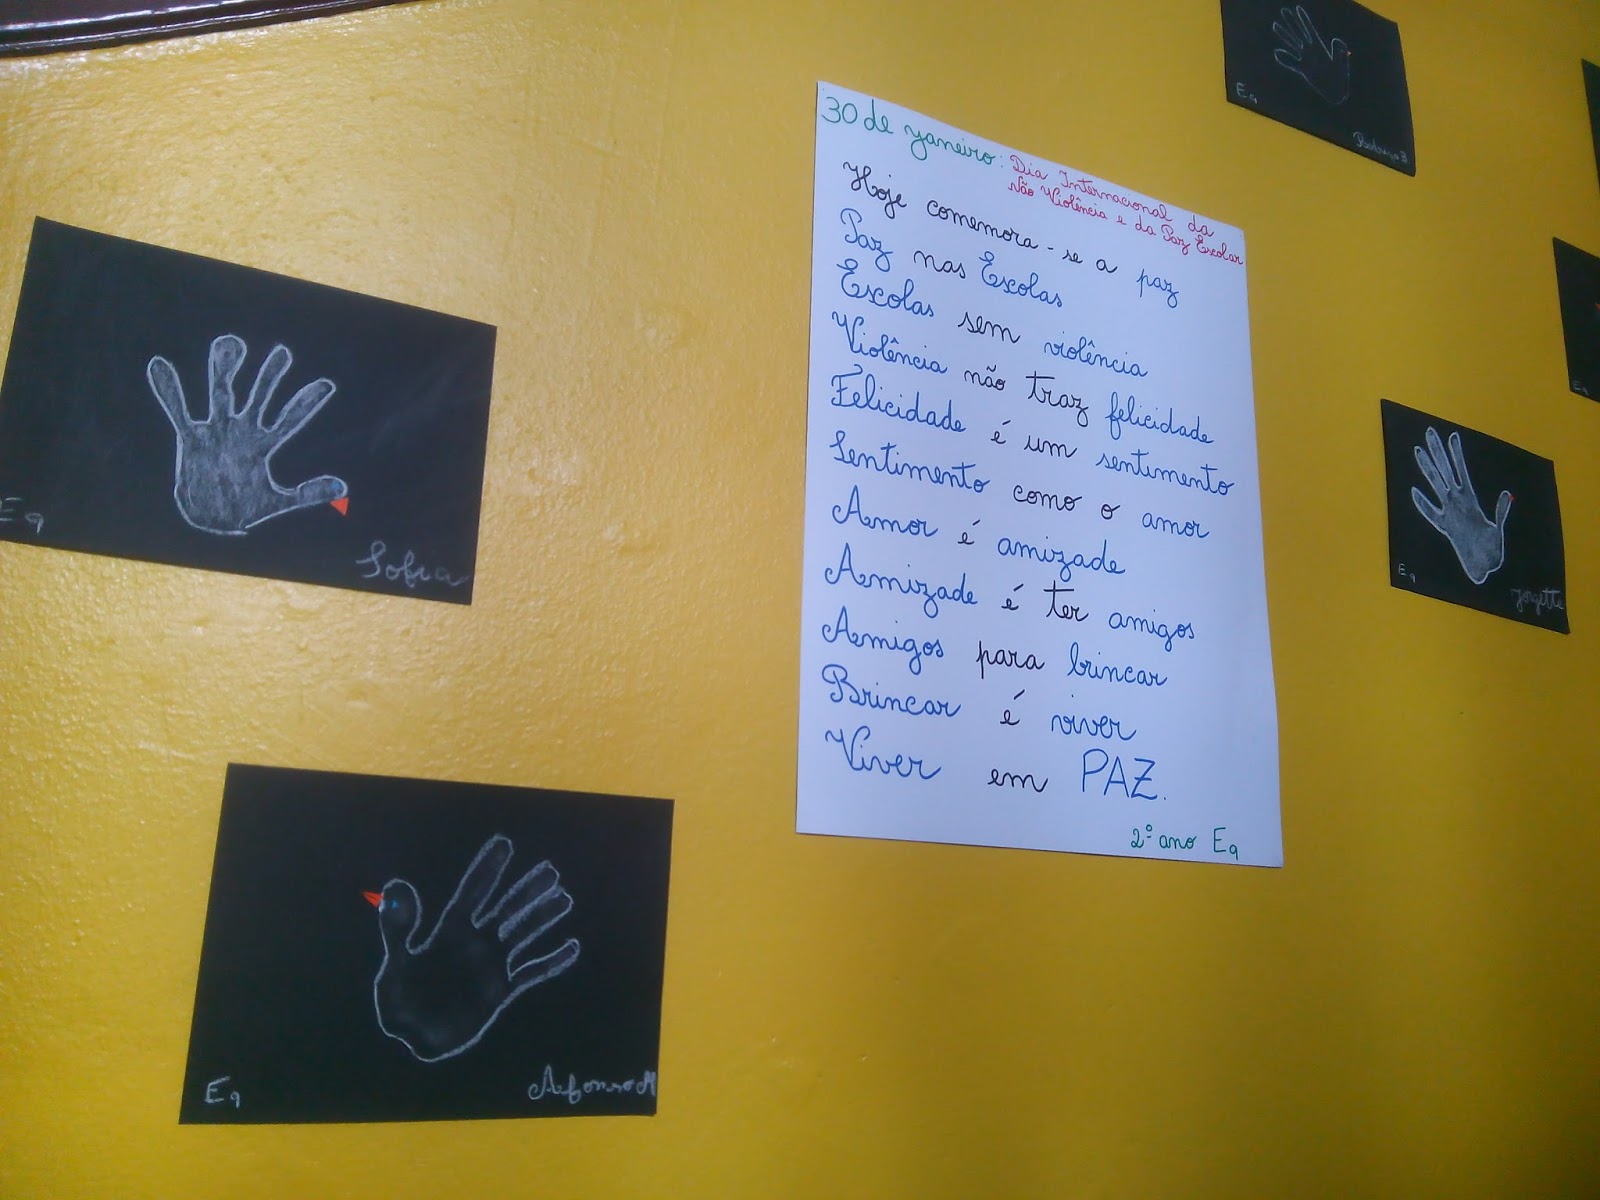 30 de janeiro: Dia Internacional da
Não Violência e da Paz Escolar
Hoje comemora-se a paz
Paz nas Escolas
Escolas sem violência
Violência não traz felicidade
Felicidade é um sentimento
Sentimento como o amor
Amor é amizade
Amizade é ter amigos
Amigos para brincar
Brincar é viver
Viver em PAZ.
2º ano E9
E9
Sofia
E9
Afonso M
E9
Rodrigo B
E9
Jorgette
E9